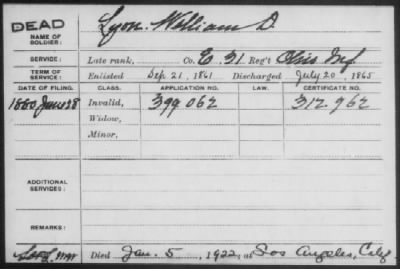 DEAD
NAME OF SOLDIER: Lyon William D.
SERVICE: Late rank, Co. E. 31 Reg't Ohio Inf.
TERM OF SERVICE: Enlisted Sep 21, 1861 Discharged July 20, 1865
DATE OF FILING. CLASS. APPLICATION NO. LAW. CERTIFICATE NO.
1880 June 28 Invalid, 399 062 312 962
Widow,
Minor,
ADDITIONAL SERVICES:
REMARKS:
Died Jan. 5, 1922, at Los Angeles, Calif